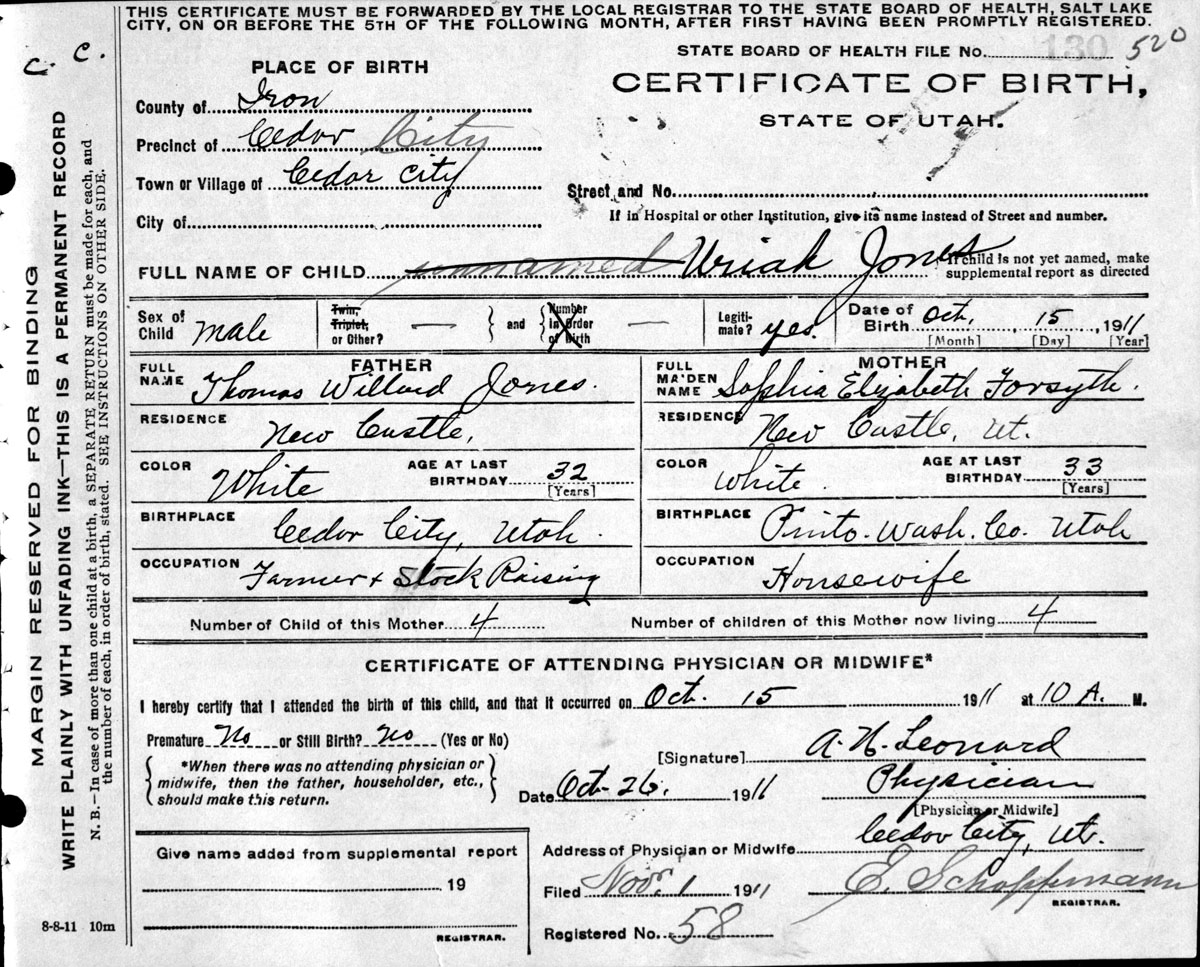 THIS CERTIFICATE MUST BE FORWARDED BY THE LOCAL REGISTRAR TO THE STATE BOARD OF HEALTH, SALT LAKE
CITY, ON OR BEFORE THE 5TH OF THE FOLLOWING MONTH, AFTER FIRST HAVING BEEN PROMPTLY REGISTERED.
C. C.
STATE BOARD OF HEALTH FILE No. 130 520
PLACE OF BIRTH
CERTIFICATE OF BIRTH,
STATE OF UTAH.
County of Iron
Precinct of Cedar City
Town or Village of Cedar City
Street and No.
City of
If in Hospital or other Institution, give its name instead of Street and number.
FULL NAME OF CHILD unnamed Uriah Jones
If child is not yet named, make
supplemental report as directed
Sex of Child male
Twin, Triplet, or Other? —
and
Number in Order of Birth —
Legitimate? yes.
Date of Birth Oct. 15, 1911
[Month] [Day] [Year]
FATHER
FULL NAME Thomas Willard Jones.
MOTHER
FULL MAIDEN NAME Sophia Elizabeth Forsyth.
RESIDENCE New Castle,
RESIDENCE New Castle, Ut.
COLOR White
AGE AT LAST BIRTHDAY 32
[Years]
COLOR White
AGE AT LAST BIRTHDAY 33
[Years]
BIRTHPLACE Cedar City, Utah.
BIRTHPLACE Pinto. Wash. Co. Utah
OCCUPATION Farmer + Stock Raising
OCCUPATION Housewife
Number of Child of this Mother 4
Number of children of this Mother now living 4
CERTIFICATE OF ATTENDING PHYSICIAN OR MIDWIFE*
I hereby certify that I attended the birth of this child, and that it occurred on Oct. 15 1911 at 10 A. M.
Premature No or Still Birth? No (Yes or No)
*When there was no attending physician or
midwife, then the father, householder, etc.,
should make this return.
[Signature] A. N. Leonard
Date Oct. 26. 1911
Physician
[Physician or Midwife]
Address of Physician or Midwife Cedar City, Ut.
Give name added from supplemental report
19
REGISTRAR.
Filed Nov. 1 1911
E. Schoppmann
REGISTRAR.
Registered No. 58
8-8-11 10m
MARGIN RESERVED FOR BINDING
WRITE PLAINLY WITH UNFADING INK—THIS IS A PERMANENT RECORD
N. B.—In case of more than one child at a birth, a SEPARATE RETURN must be made for each, and
the number of each, in order of birth, stated. SEE INSTRUCTIONS ON OTHER SIDE.